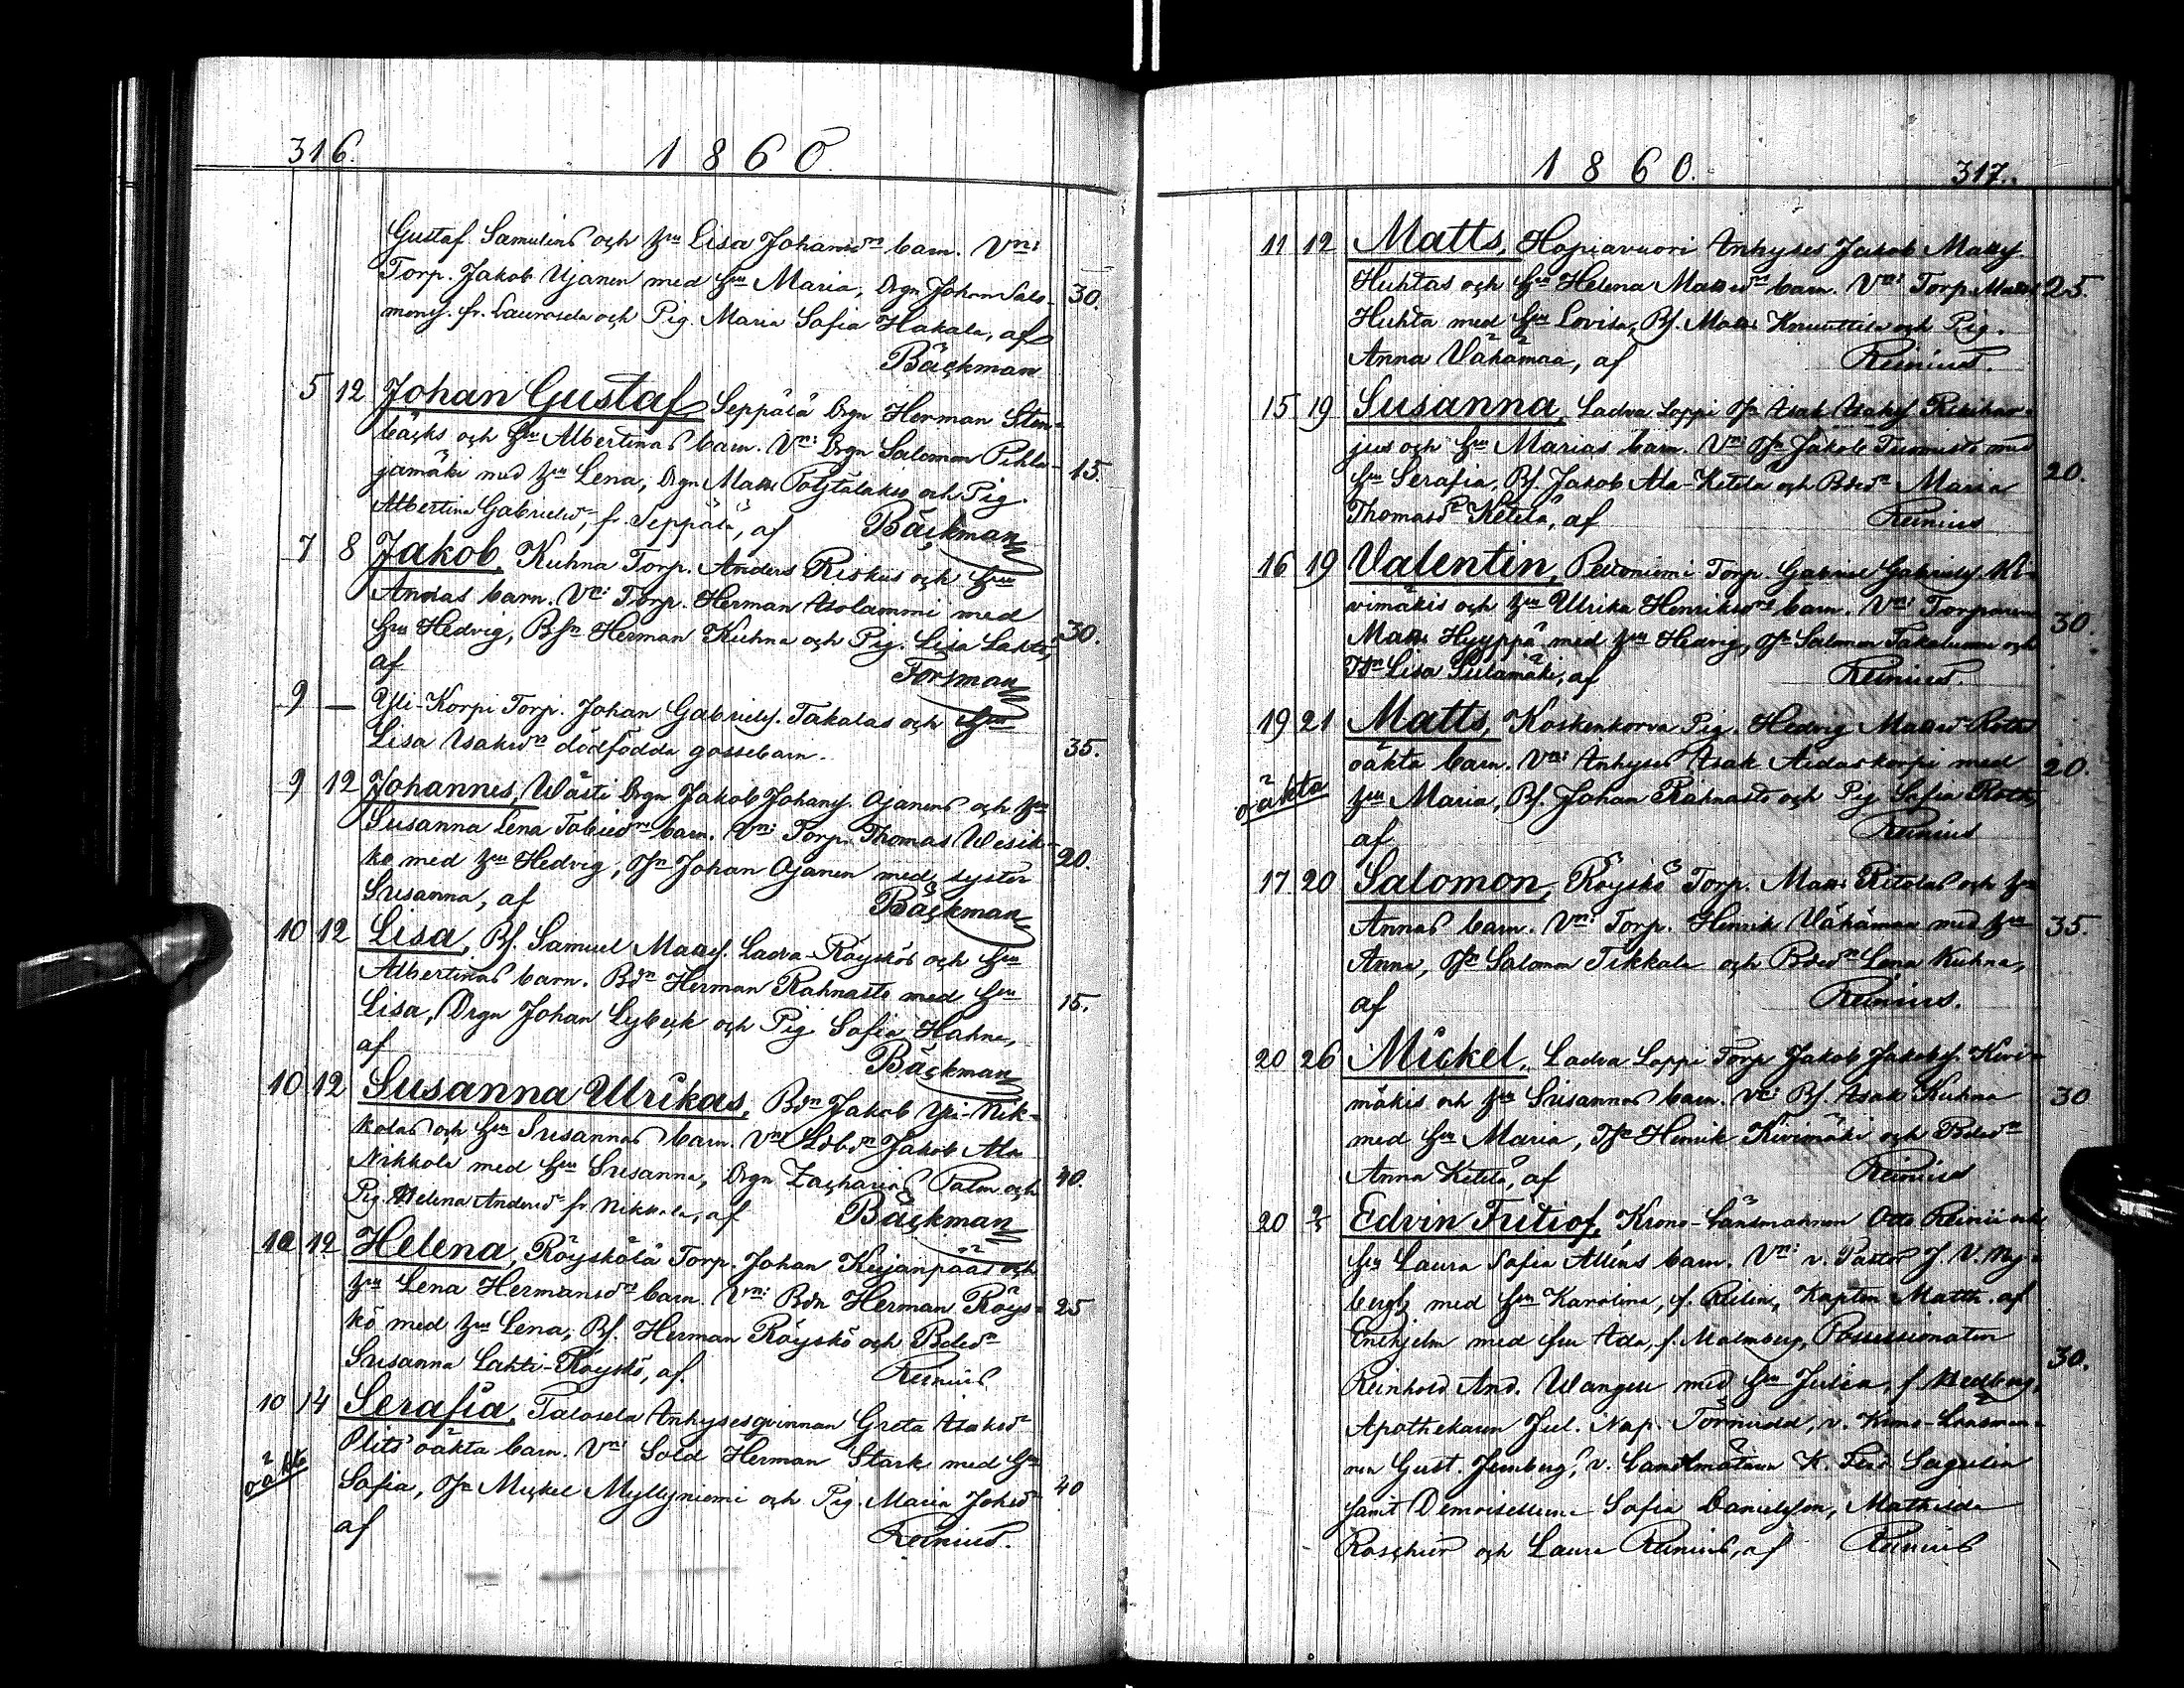 316. 1860.
Gustaf Samulins och Hu Lisa Johansdr barn. Vn:
Torp. Jakob Ujanen med Hu Maria, Drgn Johan Salo-
monss. fr. Laurosela och Pig. Maria Sofia Hakala, af 30.
Bäckman
5 12 Johan Gustaf, Seppälä Drgn Herman Sten-
bäcks och Hu Albertinas barn. Vn: Drgn Salomon Pihla-
jamäki med Hu Lena, Drgn Matts och Pig. 15.
Albertina Gabrielsdr, fr. Seppälä, af Bäckman
7 8 Jakob, Kuhna Torp. Anders Riskus och Hu
Annas barn. Vn: Torp. Herman Asolammi med
Hu Hedvig, Bsn Herman Kuhna och Pig. Lisa Lahti, 30.
af Forsman
9 — Yli-Korpi Torp. Johan Gabrielss. Takalas och Hu
Lisa Isaksdr dödfödda gossebarn. 35.
9 12 Johannes, Wästi Drgn Jakob Johanss. Ojanens och Hu
Susanna Lena Tobiasdr barn. Vn: Torp. Thomas Wesik-
ko med Hu Hedvig, Osn Johan Ojanen med syster 20.
Susanna, af Bäckman
10 12 Lisa, Bs. Samuel Matss. Ladva-Röyskös och Hu
Albertinas barn. Bdn Herman Rahnasto med Hu
Lisa, Drgn Johan Lybeck och Pig. Sofia Hahne, 15.
af Bäckman
10 12 Susanna Ulrikas, Bdn Jakob Yli-Nik-
kolas och Hu Susannas barn. Vn: Jakob Ala
Nikkola med Hu Susanna, Drgn Zacharias Palm och 40.
Pig. Helena Andersdr fr. Nikkola, af Bäckman
10 12 Helena, Röyskölä Torp. Johan Keijanpääs och
Hu Lena Hermansdr barn. Vn: Bdn Herman Röys- 25
kö med Hu Lena, Bs. Herman Röyskö och Bdedr
Susanna Lahti-Röyskö, af Reinius
10 14 Serafia, Talosela Inhysesqvinnan Greta Isaksdr
oäkta Plits' oäkta barn. Vn: Sold Herman Stark med Hu
Sofia, Osn Mickel Myllyniemi och Pig. Maria Johsdr 40
af Reinius.
1860. 317.
11 12 Matts, Hopiavuori Inhyses Jakob Matss.
Huhtas och Hu Helena Matsdr barn. Vn: Torp. Matts 25.
Huhta med Hu Lovisa, Bs. Matts Knuuttila och Pig.
Anna Vähämaa, af Reinius.
15 19 Susanna, Ladva Loppi Osn Isak Isakss.
jus och Hu Marias barn. Vn: Osn Jakob Tuomisto med
Hu Serafia, Bs. Jakob Ala-Ketela och Bdedr Maria 20.
Thomasdr Ketelä, af Reinius
16 19 Valentin, Peltoniemi Torp. Gabriel Gabrielss. Ki-
vimäkis och Hu Ulrika Henriksdrs barn. Vn: Torparen 30.
Matts Hyyppä med Hu Hedvig, Osn Salomon Takaluoma och
Lisa Sillamäki, af Reinius.
19 21 Matts, Koskenkorva Pig. Hedvig Matsdr Roths
oäkta oäkta barn. Vn: Inhyses Isak Aidaskorpi med 20.
Hu Maria, Bs. Johan Rahnasto och Pig Sofia Roth,
af Reinius
17 20 Salomon, Röyskö Torp. Matts Ritolas och Hu
Annas barn. Vn: Torp. Henrik Vähämaa med Hu 35.
Anna, Osn Salomon Tikkala och Bdedr Lena Kuhna,
af Reinius.
20 26 Mickel, Ladva Loppi Torp Jakob Jakobss. Kivi-
mäkis och Hu Susannas barn. Vn: Bs. Isak Kuhna 30
med Hu Maria, Henrik Kivimäki och Bdedr
Anna Ketelä, af Reinius
20 Edvin Fritiof, Krono-Länsmannen Otto Reinii och
Hu Laura Sofia Alléns barn. Vn: v. Pastor J. V. Ny-
bergh med Hu Karolina, f. Relin, Kapten Matth. af
Enehjelm med Hu Ada, f. Malmberg, Possessionaten
Reinhold And. Wangel med Hu Julia, f. Hedberg, 30.
Apothekaren Jul. Nap. Törnudd, v. Krono-Länsman-
nen Gust. Jernberg, v. Landtmätaren K. Ferd Lagrelin
samt Demoisellerne Sofia Danielsson, Mathilda
Roschier och Laura Reinius, af Reinius